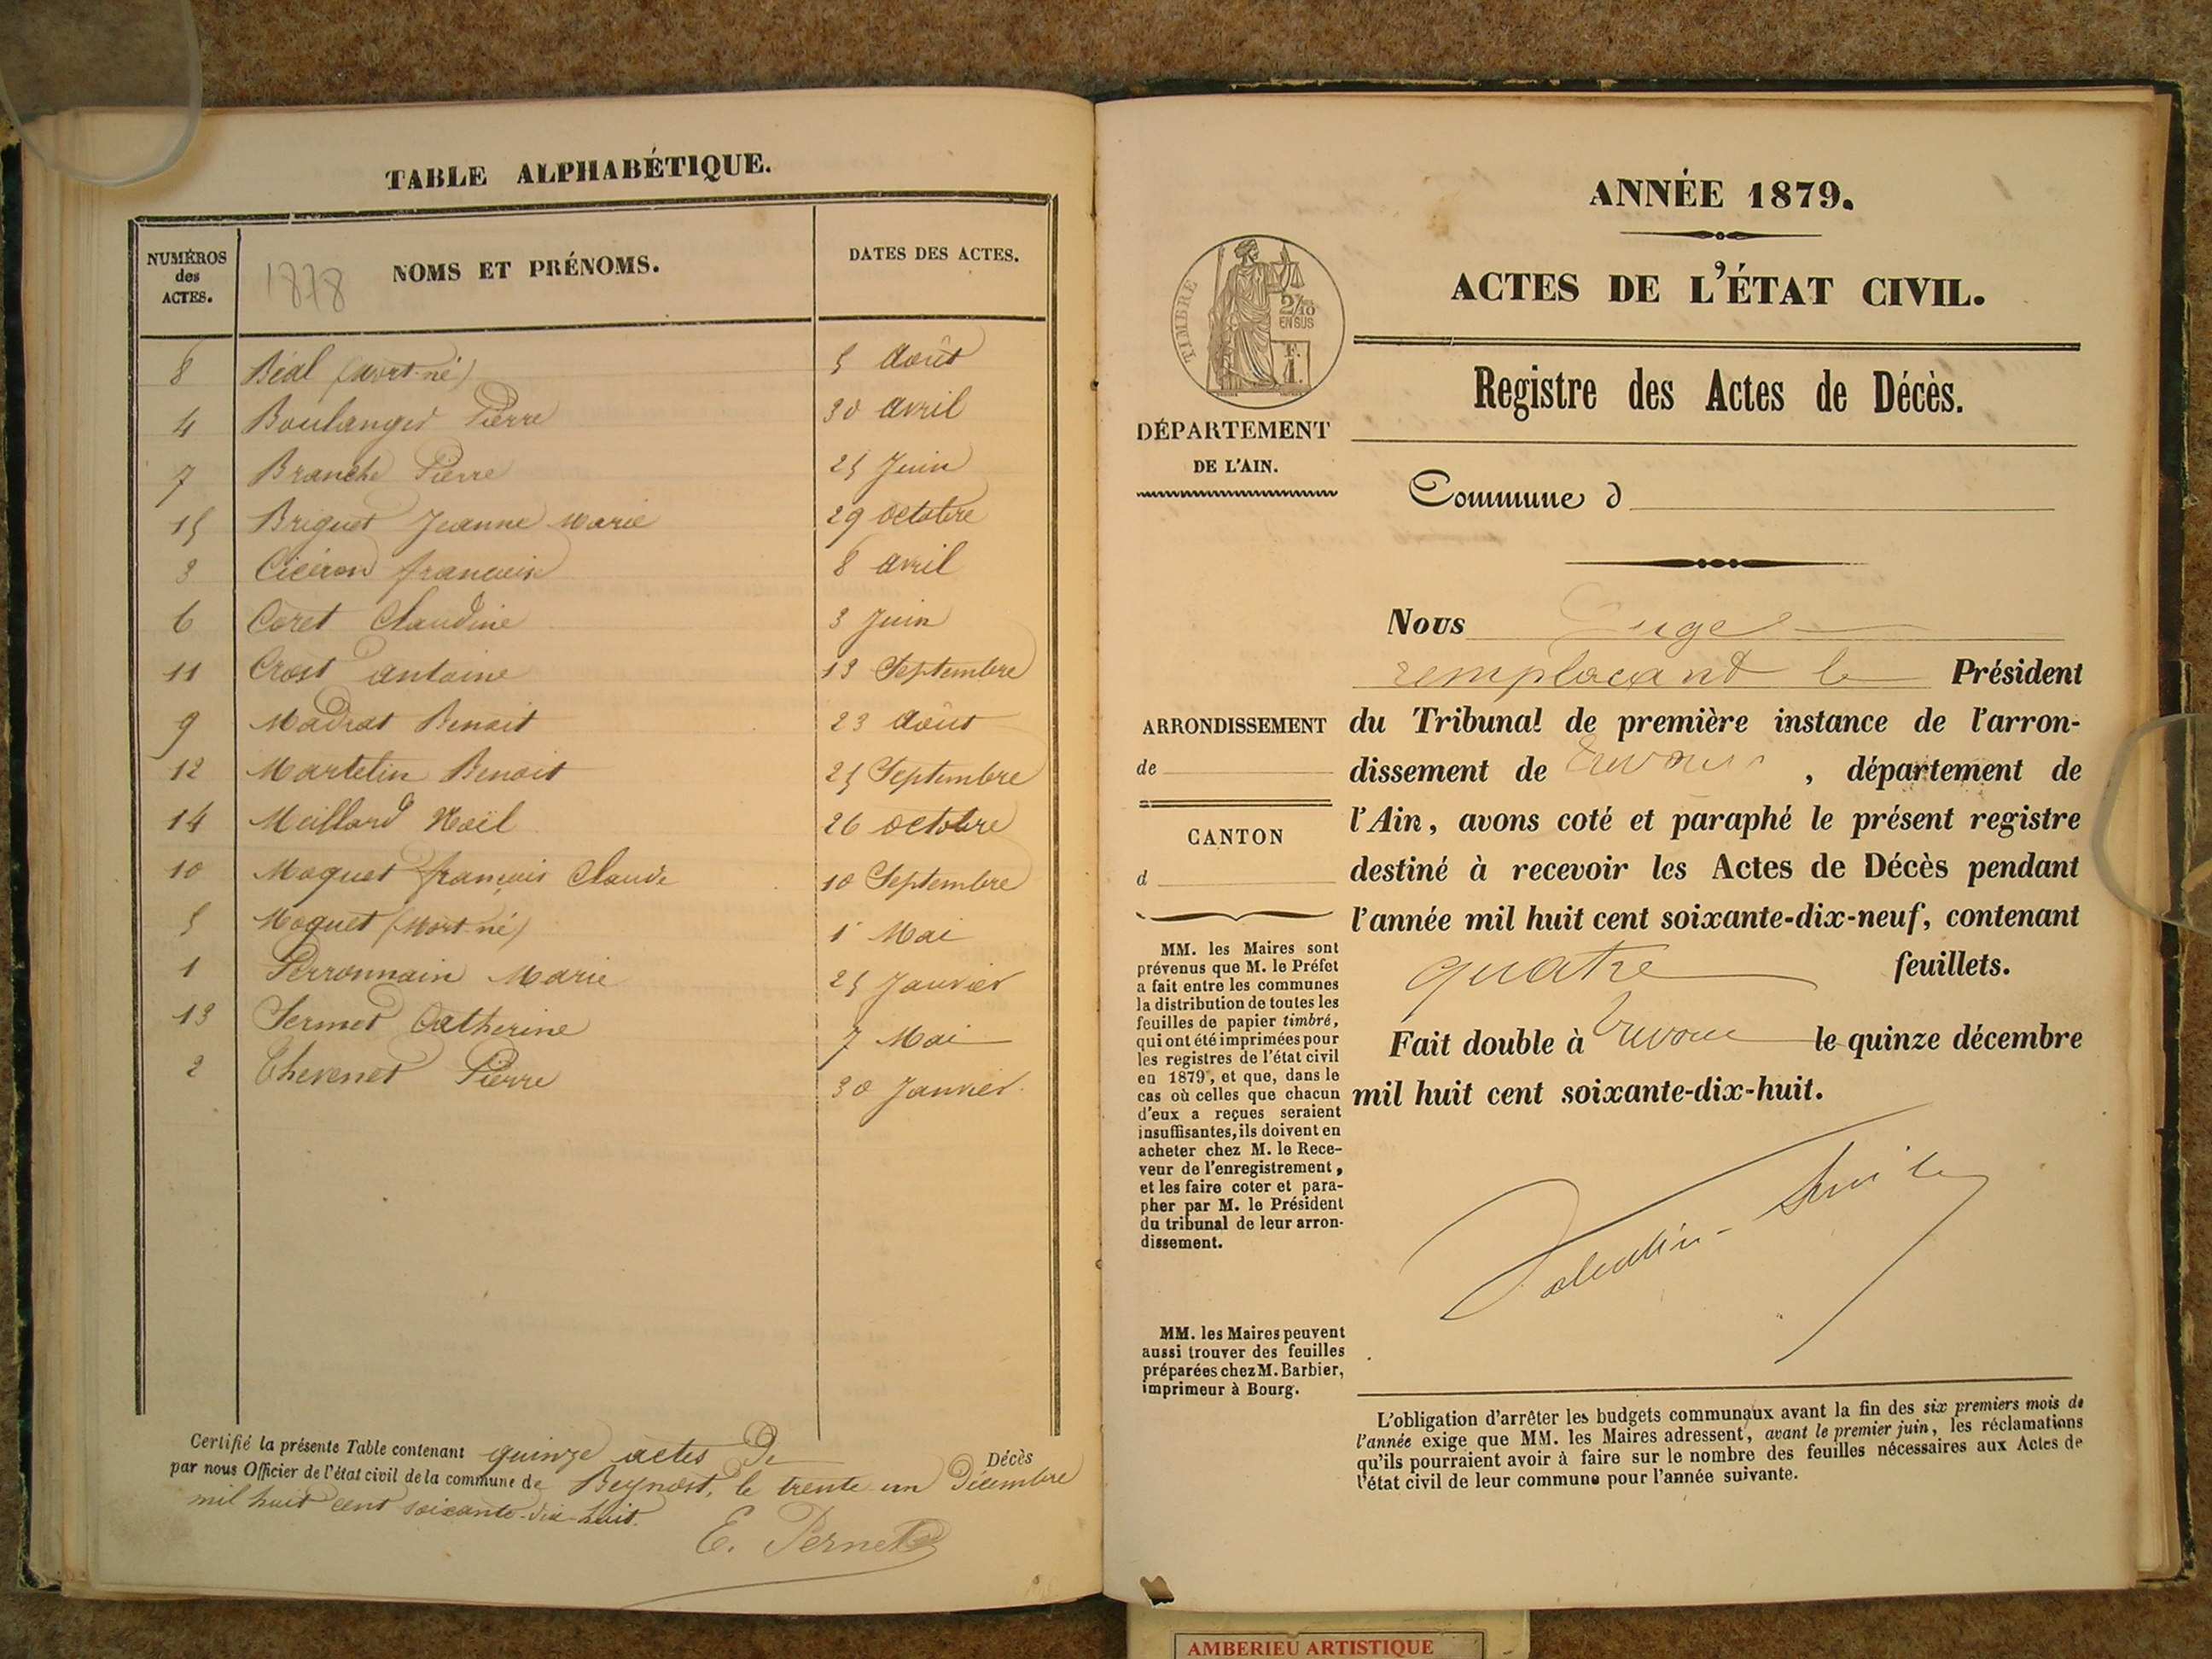 TABLE ALPHABÉTIQUE.
NUMÉROS des ACTES.
1878 NOMS ET PRÉNOMS.
DATES DES ACTES.
8 Béal (Mort-né) 5 Août
4 Boulanger Pierre 30 avril
7 Branche Pierre 25 Juin
15 Briguet Jeanne Marie 29 octobre
3 Cicéron françois 8 avril
6 Coret Claudine 3 Juin
11 Crost antoine 13 Septembre
9 Madrat Benoit 23 Août
12 Martelin Benoit 25 Septembre
14 Meillard Noël 26 octobre
10 Moquet françois Claude 10 Septembre
5 Moquet (Mort-né) 1 Mai
1 Perronnain Marie 25 Janvier
13 Sermet Catherine 7 Mai
2 Thevenet Pierre 30 Janvier
Certifié la présente Table contenant quinze actes De Décès
par nous Officier de l'état civil de la commune de Beynost, le trente un Décembre
mil huit cent soixante-dix-huit.
E. Pernet
ANNÉE 1879.
ACTES DE L'ÉTAT CIVIL.
TIMBRE
2/10 EN SUS
F. 1.
Registre des Actes de Décès.
DÉPARTEMENT
DE L'AIN.
Commune d
Nous Juge
remplaçant le Président
ARRONDISSEMENT
de
CANTON
d
du Tribunal de première instance de l'arron-
dissement de Trévoux, département de
l'Ain, avons coté et paraphé le présent registre
destiné à recevoir les Actes de Décès pendant
l'année mil huit cent soixante-dix-neuf, contenant
quatre feuillets.
Fait double à Trévoux le quinze décembre
mil huit cent soixante-dix-huit.
Valentin-Smith
MM. les Maires sont
prévenus que M. le Préfet
a fait entre les communes
la distribution de toutes les
feuilles de papier timbré,
qui ont été imprimées pour
les registres de l'état civil
en 1879, et que, dans le
cas où celles que chacun
d'eux a reçues seraient
insuffisantes, ils doivent en
acheter chez M. le Rece-
veur de l'enregistrement,
et les faire coter et para-
pher par M. le Président
du tribunal de leur arron-
dissement.
MM. les Maires peuvent
aussi trouver des feuilles
préparées chez M. Barbier,
imprimeur à Bourg.
L'obligation d'arrêter les budgets communaux avant la fin des six premiers mois de
l'année exige que MM. les Maires adressent, avant le premier juin, les réclamations
qu'ils pourraient avoir à faire sur le nombre des feuilles nécessaires aux Actes de
l'état civil de leur commune pour l'année suivante.
AMBERIEU ARTISTIQUE